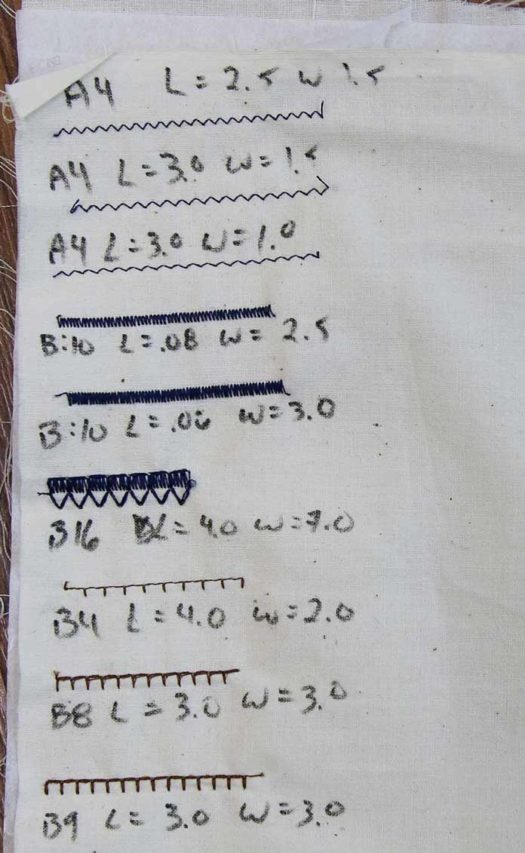 A4 L=2.5 W 1.5
A4 L=3.0 W=1.5
A4 L=3.0 W=1.0
B:10 L=.08 W= 2.5
B:10 L=.06 W=3.0
B16 L=4.0 W=7.0
B4 L=4.0 W=2.0
B8 L=3.0 W=3.0
B9 L=3.0 W=3.0